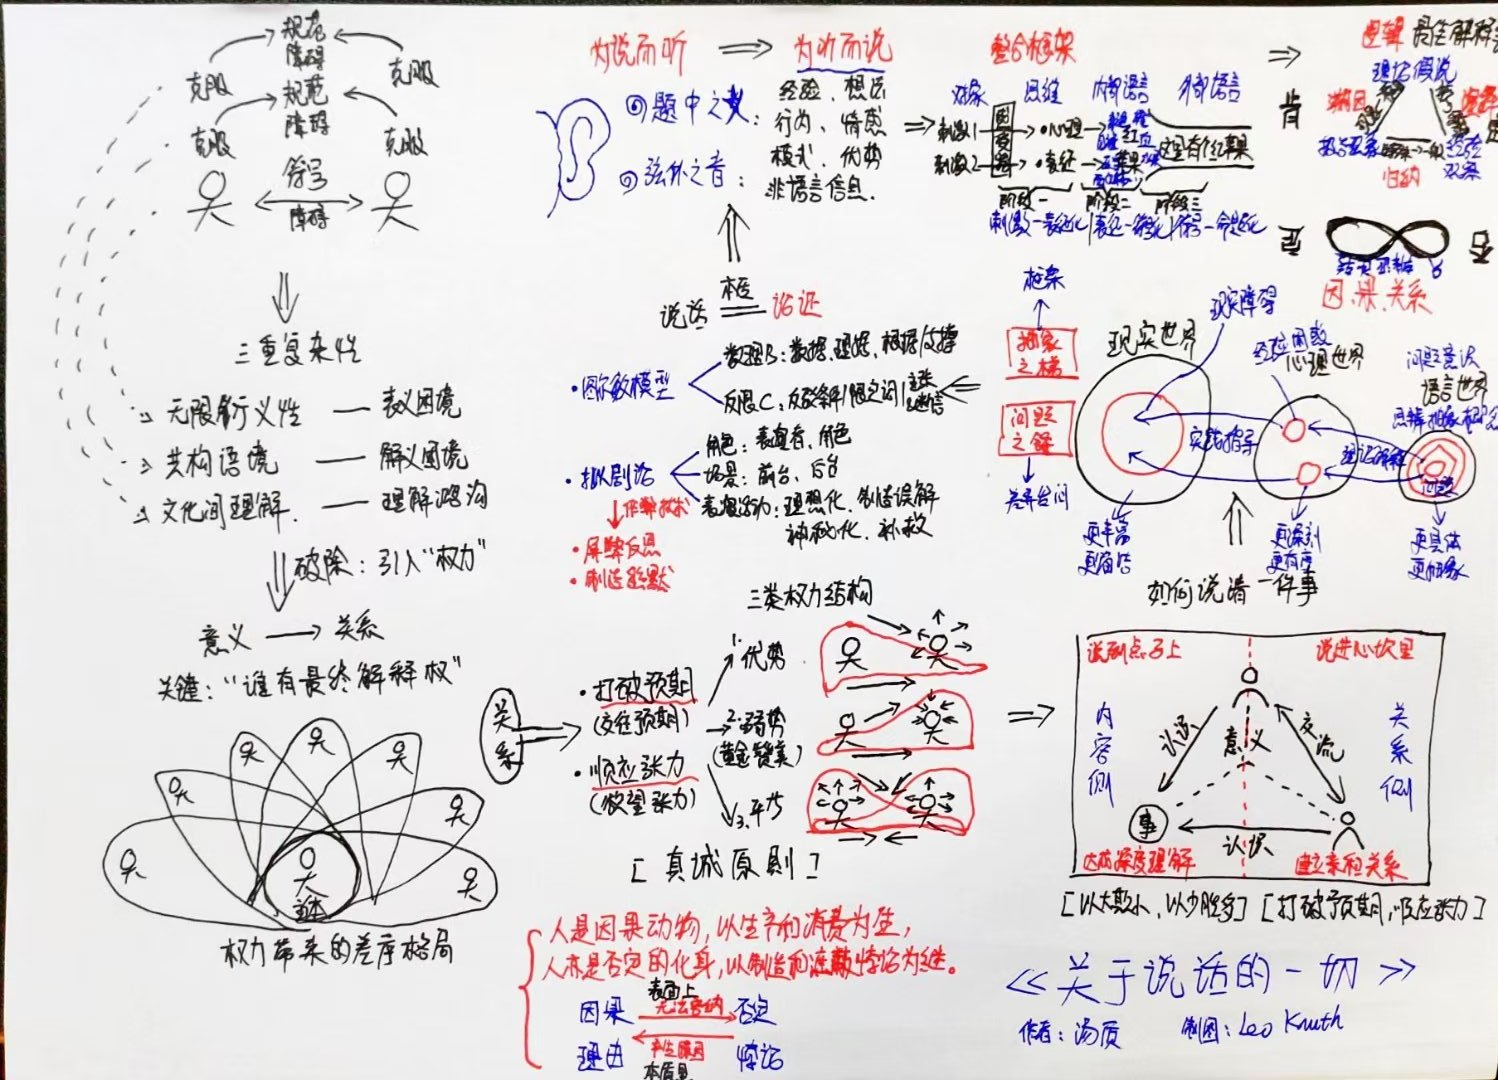 规范
障碍
克服
克服
规范
障碍
克服
克服
符号
障碍
三重复杂性
无限衍义性 — 表义困境
共构语境 — 解义困境
文化间理解 — 理解鸿沟
破除：引入“权力”
意义 → 关系
关键：“谁有最终解释权”
主体
权力带来的差序格局
为说而听
为听而说
◎题中之义：
经验、想法
行为、情感
模式、优势
◎弦外之音：
非语言信息.
框
说话
论证
·图尔敏模型
数理B：数据、理据、根据/支撑
反限C：反驳条件/限定词/主张
·拟剧论
角色：表演者、角色
场景：前台、后台
表演活动：理想化、制造误解
神秘化、补救
·屏蔽反思
·制造幽默
三类权力结构
关系
·打破预期
(交往预期)
·顺应张力
(欲望张力)
1.优势
2.弱势
(黄金赞美)
3.平等
[真诚原则]
人是因果动物，以生产和消费为生，
人亦是否定的化身，以制造和连载悖论为继。
因果
表面上
否定
理由
产生原因
悖论
本质是
整合框架
对象
思维
内部语言
外部语言
刺激1
·心理
刺激2
·表征
这里有个红苹果
阶段一
阶段二
阶段三
刺激—表征化
表征—符号化
符号—命题化
逻辑
最佳解释
理论假说
归纳
肯
定
否
因果关系
框架
抽象
之梯
问题
之锤
差异台阶
现实世界
现实障碍
心理世界
问题意识
语言世界
实践指导
理论解释
问题
更丰富
更鲜活
更深刻
更有序
更具体
更抽象
如何说清一件事
说到点子上
说进心坎里
内容侧
关系侧
认识
意义
交流
事
认识
达成深度理解
建立亲和关系
[以大欺小、以少胜多]
[打破预期，顺应张力]
《关于说话的一切》
作者：汤质
制图：Leo Knuth